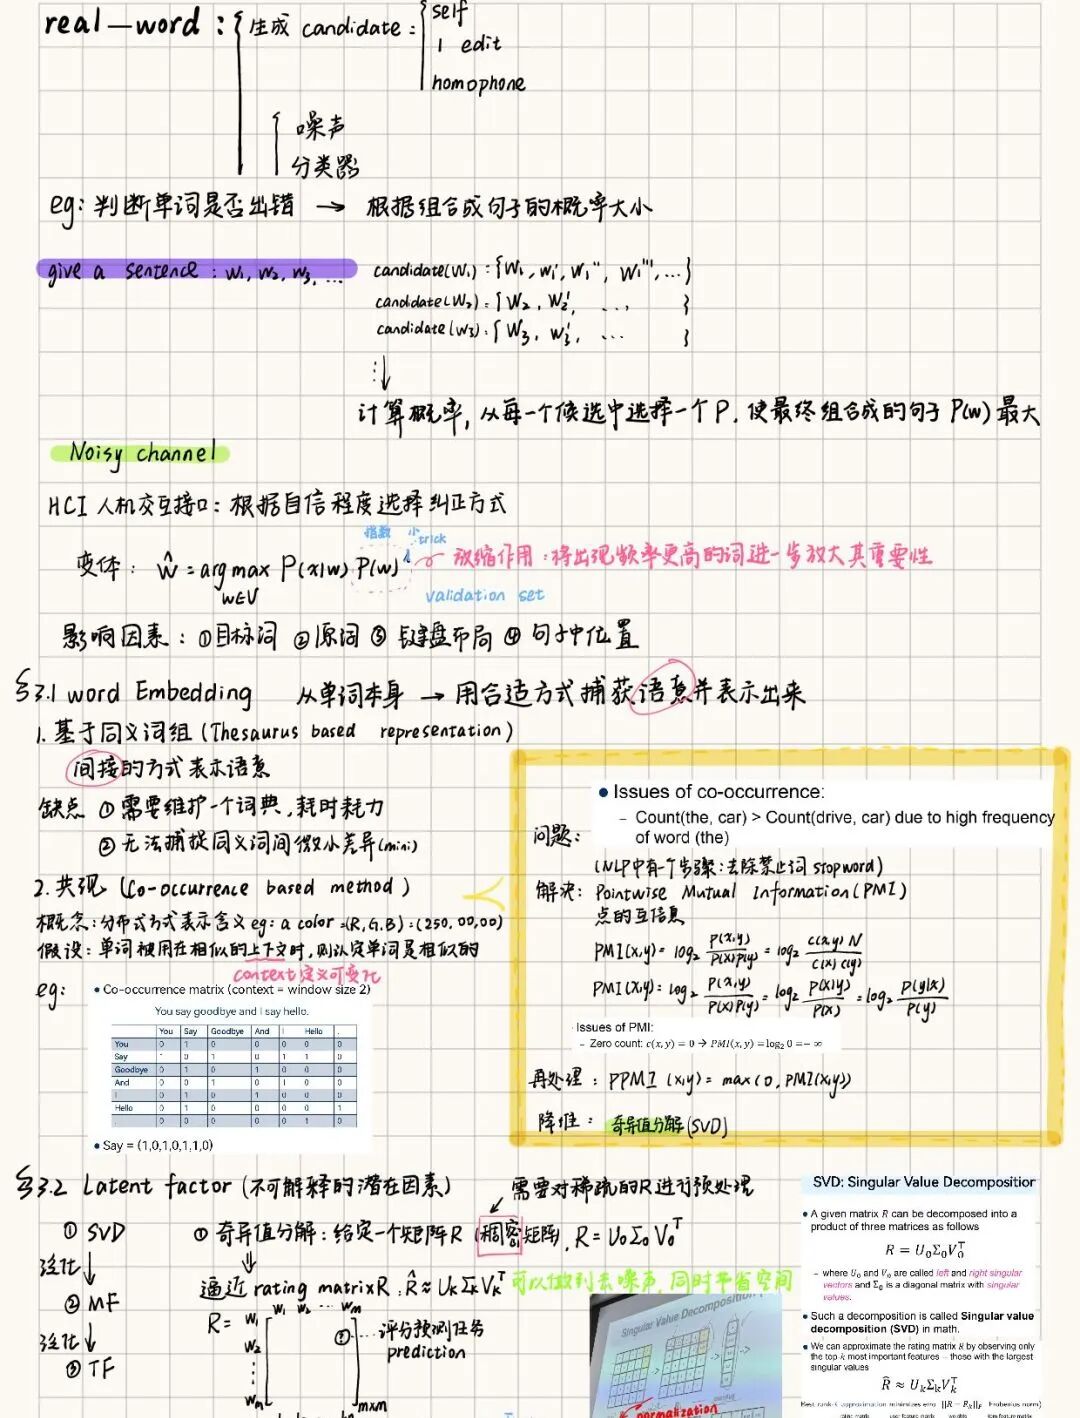 real-word: 生成 candidate:
self
1 edit
homophone
噪声
分类器
eg: 判断单词是否出错 → 根据组合成句子的概率大小
give a sentence: w₁, w₂, w₃, ...
candidate(w₁): {w₁, w₁', w₁'', w₁''', ...}
candidate(w₂): {w₂, w₂', ..., }
candidate(w₃): {w₃, w₃', ... }
计算概率, 从每一个候选中选择一个P. 使最终组合成的句子 P(w) 最大
Noisy channel
HCI 人机交互接口: 根据自信程度选择纠正方式
指数 小trick
变体: ŵ = argmax P(x|w) P(w)^λ
w∈V
放缩作用: 将出现频率更高的词进一步放大其重要性
validation set
影响因素: ①目标词 ②原词 ③键盘布局 ④句子中位置
§3.1 word Embedding 从单词本身 → 用合适方式捕获语意并表示出来
1. 基于同义词组 (Thesaurus based representation)
间接的方式表示语意
缺点 ①需要维护一个词典, 耗时耗力
②无法捕捉同义词间微小差异(mini)
2. 共现 (Co-occurrence based method)
概念: 分布式方式表示含义 eg: a color =(R,G.B)=(250,00,00)
假设: 单词被用在相似的上下文时, 则认定单词是相似的
context定义可变化
eg:
• Co-occurrence matrix (context = window size 2)
You say goodbye and I say hello.
You Say Goodbye And I Hello .
You 0 1 0 0 0 0 0
Say 1 0 1 0 1 1 0
Goodbye 0 1 0 1 0 0 0
And 0 0 1 0 1 0 0
I 0 1 0 1 0 0 0
Hello 0 1 0 0 0 0 1
. 0 0 0 0 0 1 0
• Say = (1,0,1,0,1,1,0)
• Issues of co-occurrence:
– Count(the, car) > Count(drive, car) due to high frequency
of word (the)
问题:
(NLP中有一个步骤: 去除禁止词 stopword)
解决: Pointwise Mutual Information (PMI)
点的互信息
PMI(x,y) = log₂ P(x,y)/P(x)P(y) = log₂ C(x,y) N/C(x) C(y)
PMI(x,y) = log₂ P(x,y)/P(x)P(y) = log₂ P(x|y)/P(x) = log₂ P(y|x)/P(y)
Issues of PMI:
– Zero count: c(x, y) = 0 → PMI(x, y) = log₂ 0 = − ∞
再处理: PPMI (x,y) = max(0, PMI(x,y))
降维: 奇异值分解(SVD)
§3.2 Latent factor (不可解释的潜在因素)
需要对稀疏的R进行预处理
① SVD
泛化↓
② MF
泛化↓
③ TF
① 奇异值分解: 给定一个矩阵R (稠密矩阵), R = U₀Σ₀V₀ᵀ
逼近 rating matrix R, R̂ ≈ UₖΣₖVₖᵀ 可以做到去噪声, 同时节省空间
w₁ w₂ ... wₘ
R = w₁
w₂
⋮
wₘ
? ... 评分预测任务
prediction
m×m
Singular Value Decomposition
normalization
SVD: Singular Value Decomposition
• A given matrix R can be decomposed into a
product of three matrices as follows
R = U₀Σ₀V₀ᵀ
– where U₀ and V₀ are called left and right singular
vectors and Σ₀ is a diagonal matrix with singular
values.
• Such a decomposition is called Singular value
decomposition (SVD) in math.
• We can approximate the rating matrix R by observing only
the top k most important features – those with the largest
singular values
R̂ ≈ UₖΣₖVₖᵀ